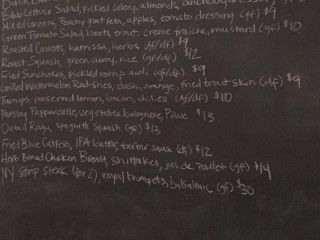 Bibb Lettuce Salad, pickled celery, almonds, anchovy
Mixed Greens, Beauty goat feta, apples, tomato dressing (gf) $9
Green Tomato Salad, beets, trout, creme fraiche, mustard (gf) $10
Roasted Carrots, harrissa, herbs (gf/df) $9
Roast Squash, green curry, rice (gf/df) $12
Fried Sunchokes, pickled ramp aioli (gf/df) $9
Grilled Watermelon Radishes, dashi, orange, fried trout skin (df) $9
Turnips, preserved lemon, bacon, chilies (gf/df) $10
Parsley Pappardelle, vegetable bolognese, Pave $13
Ragu, spaghetti squash (gf) $13
Fried Blue Catfish, IPA batter, tartar sauce (df) $12
Herb Brined Chicken Breast, shiitakes, jus de (gf) $14
NY Strip Steak (for 2), royal trumpets, balsalmic (gf) $30